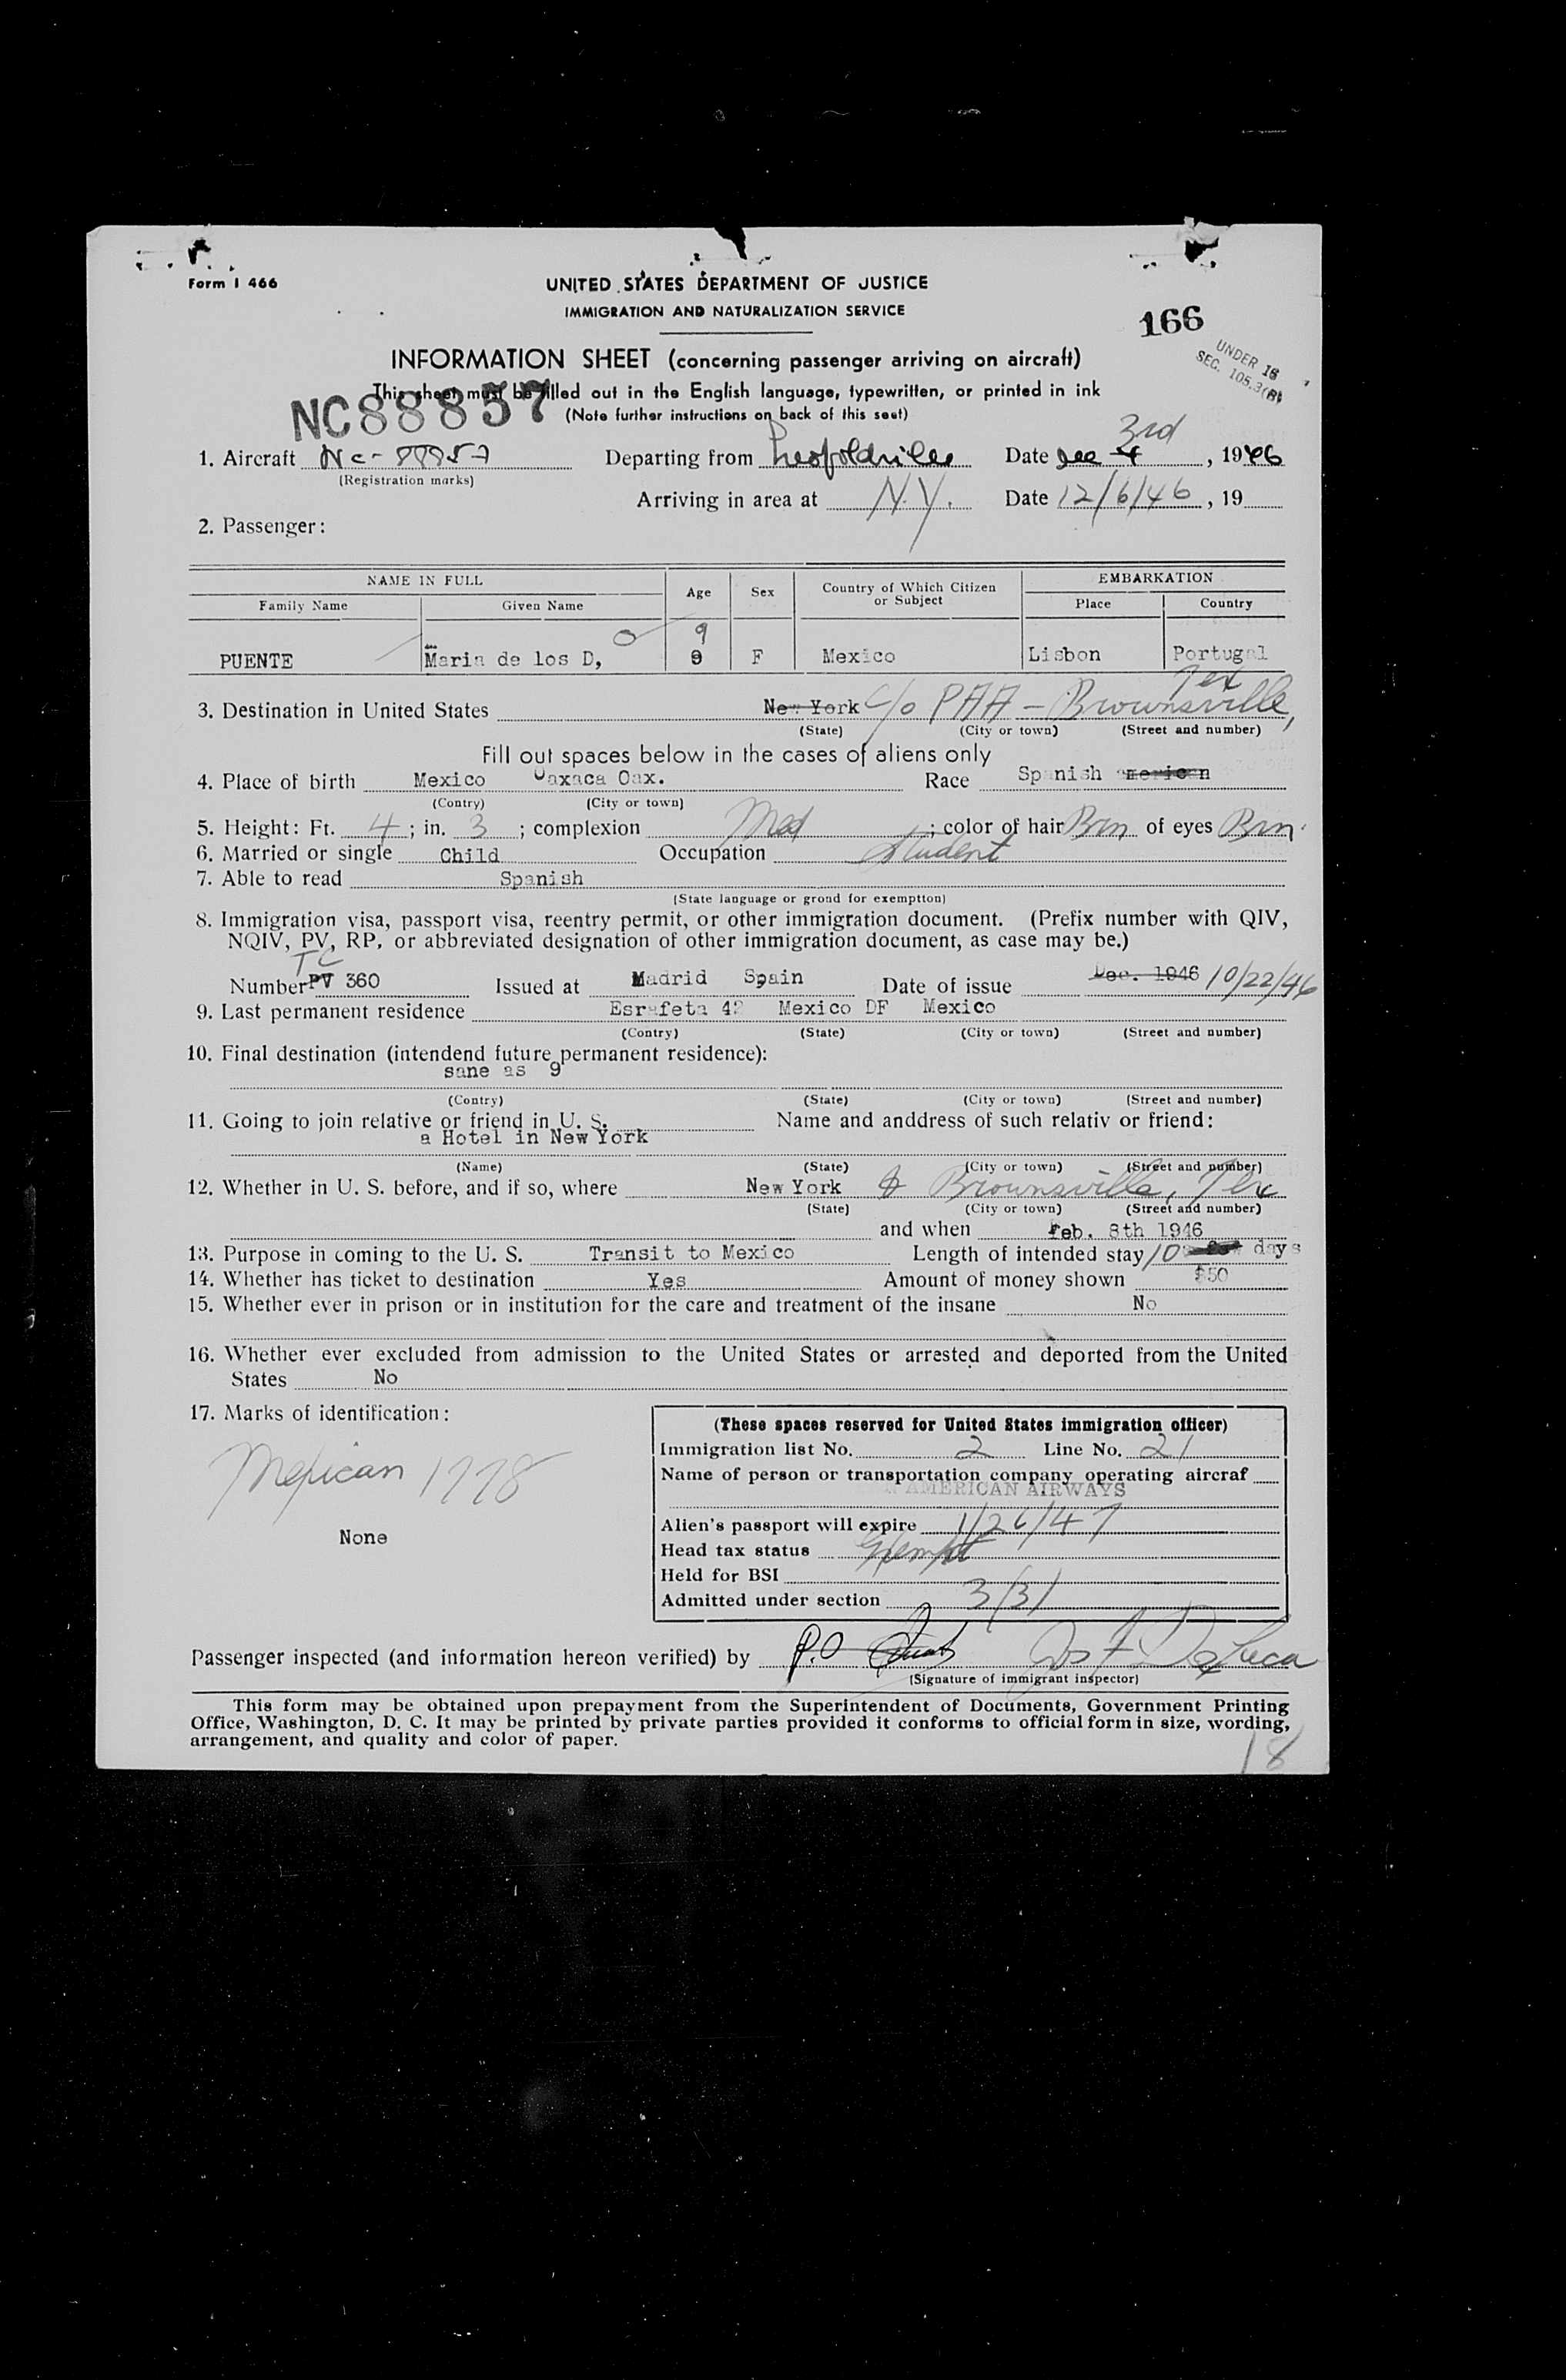 Form I 466
UNITED STATES DEPARTMENT OF JUSTICE
IMMIGRATION AND NATURALIZATION SERVICE
166
UNDER 16
SEC. 105.3(B)
INFORMATION SHEET (concerning passenger arriving on aircraft)
This sheet must be filled out in the English language, typewritten, or printed in ink
NC88857
(Note further instructions on back of this seet)
3rd
1. Aircraft Nc-88857 Departing from Leopoldville Date Dec 4, 1946
(Registration marks)
Arriving in area at N.Y. Date 12/6/46, 19
2. Passenger:
NAME IN FULL Age Sex Country of Which Citizen or Subject EMBARKATION
Family Name Given Name Place Country
9
PUENTE Maria de los D, 9 F Mexico Lisbon Portugal
Tex
3. Destination in United States New York c/o PAA - Brownsville,
(State) (City or town) (Street and number)
Fill out spaces below in the cases of aliens only
4. Place of birth Mexico Oaxaca Oax. Race Spanish american
(Contry) (City or town)
5. Height: Ft. 4; in. 3; complexion Med; color of hair Brn of eyes Brn.
6. Married or single Child Occupation Student
7. Able to read Spanish
(State language or grond for exemption)
8. Immigration visa, passport visa, reentry permit, or other immigration document. (Prefix number with QIV,
NQIV, PV, RP, or abbreviated designation of other immigration document, as case may be.)
TC
Number PV 360 Issued at Madrid Spain Date of issue Dec. 1946 10/22/46
9. Last permanent residence Esrafeta 42 Mexico DF Mexico
(Contry) (State) (City or town) (Street and number)
10. Final destination (intendend future permanent residence):
sane as 9
(Contry) (State) (City or town) (Street and number)
11. Going to join relative or friend in U. S. Name and anddress of such relativ or friend:
a Hotel in New York
(Name) (State) (City or town) (Street and number)
12. Whether in U. S. before, and if so, where New York & Brownsville, Tex
(State) (City or town) (Street and number)
and when Feb. 8th 1946
13. Purpose in coming to the U. S. Transit to Mexico Length of intended stay 10 days
14. Whether has ticket to destination Yes Amount of money shown $50
15. Whether ever in prison or in institution for the care and treatment of the insane No
16. Whether ever excluded from admission to the United States or arrested and deported from the United
States No
17. Marks of identification:
Mexican 1778
None
(These spaces reserved for United States immigration officer)
Immigration list No. 2 Line No. 21
Name of person or transportation company operating aircraf
AMERICAN AIRWAYS
Alien's passport will expire 1/26/47
Head tax status Exempt
Held for BSI
Admitted under section 3/31
Passenger inspected (and information hereon verified) by P.O
(Signature of immigrant inspector)
This form may be obtained upon prepayment from the Superintendent of Documents, Government Printing
Office, Washington, D. C. It may be printed by private parties provided it conforms to official form in size, wording,
arrangement, and quality and color of paper.
18